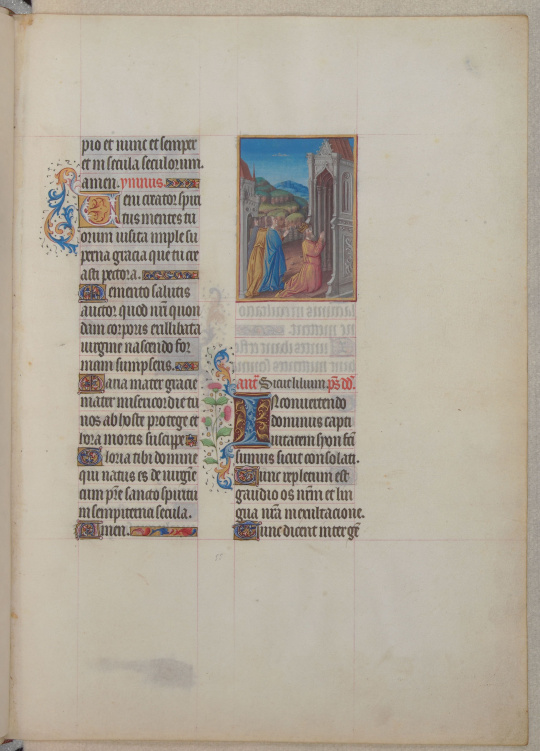 pio et nunc et semper
et in secula seculorum.
amen. ymnus.
Veni creator spiri
tus mentes tu
orum visita imple su
perna gracia que tu cre
asti pectora.
Memento salutis
auctor quod nr̄i quon
dam corporis ex illibata
virgine nascendo for
mam sumpseris.
Maria mater gracie
mater misericordie tu
nos ab hoste protege et
hora mortis suscipe
Gloria tibi domine
qui natus es de virgīe
cum pr̄e sancto spiritu
in sempiterna secula.
Amen.
ant̄. Sicut lilium. ps̄. dd̄.
In convertendo
dominus capti
vitatem syon fc̄i
sumus sicut consolati.
Tunc repletum est
gaudio os nr̄m et lin
gua nr̄a in exultacione.
Tunc dicent inter gē